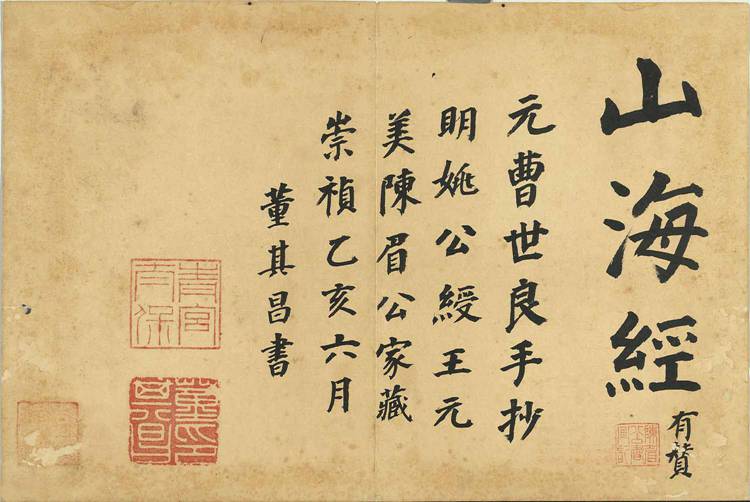 山海經
有贊
元曹世良手抄
明姚公綬王元
美陳眉公家藏
崇禎乙亥六月
董其昌書
青宮太保
董其昌印